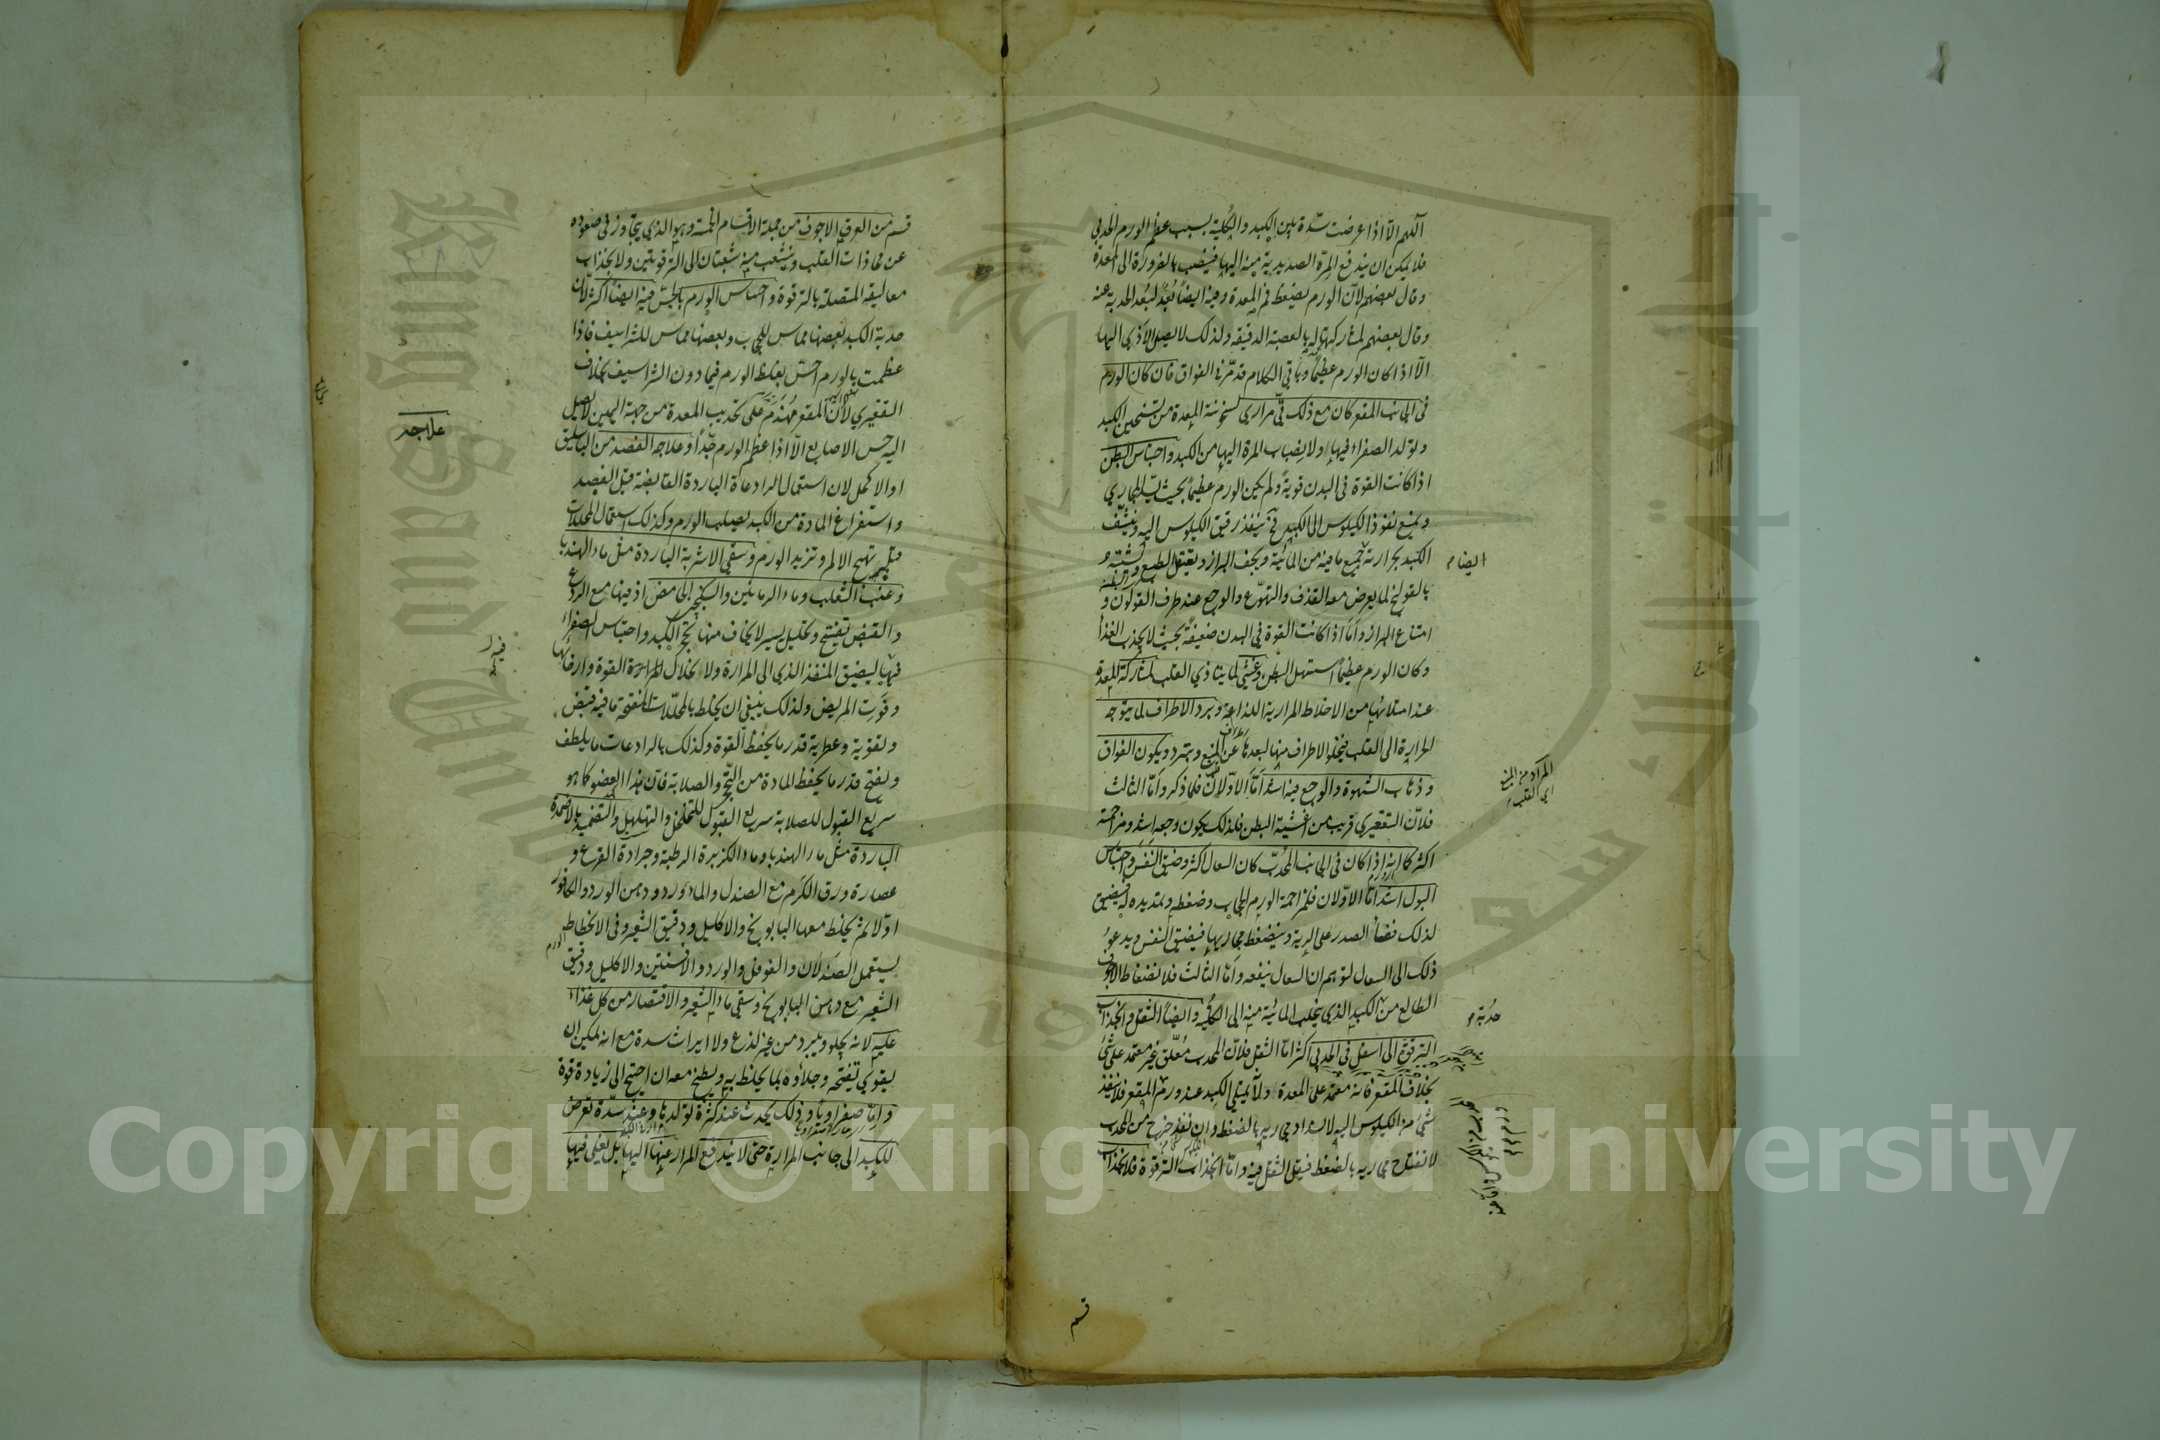 اللهم الا اذا عرضت سدة بين الكبد والكلية بسبب عظم الورم الحدبي
فلا يمكن ان يندفع المرة الصديدية منه اليها فينصب بالضرورة الى المعدة
وقال بعضهم لان الورم يضغط فم المعدة وفيه ايضا بُعد لبعد الحدبة عنه
وقال بعضهم لمشاركتها له بالعصبة الدقيقة ولذلك لا يصل الاذى اليها
الا اذا كان الورم عظيما وباقي الكلام قد مر في الفواق فان كان الورم
في الجانب المقعر كان مع ذلك قئ مراري لسخونة المعدة من تسخين الكبد
وتولد الصفراء فيها او لانصباب المرة اليها من الكبد واحتباس البطن
اذا كانت القوة في البدن قوية ولم يكن الورم عظيما بحيث يسد المجاري
ويمنع نفوذ الكيلوس الى الكبد فح ينفذ رقيق الكيلوس اليه وينشف
الكبد بحرارته جميع ما فيه من المائية ويجف البراز ويعتقل الطبع
بالقولنج لما يعرض معه القذف والتهوع والوجع عند طرف القولون و
امتناع البراز واما اذا كانت القوة في البدن ضعيفة بحيث لا يجذب الغذاء
وكان الورم عظيما استسهل البطن وغشي لما يتاذى القلب لمشاركة المعدة
عند امتلائها من الاخلاط المرارية اللذاعة وبرد الاطراف لما يتوجه
الحرارة الى القلب فيخلو الاطراف منها لبعدها عن المنبع ويتبرد ويكون الفواق
وذهاب الشهوة والوجع فيه اشد اما الاولان فلما ذكر واما الثالث
فلان التقعيري قريب من اغشية البطن فلذلك يكون وجعه اشد ومزاحمته
اكثر كما انه اذا كان في الجانب المحدب كان السعال اكثر وضيق النفس واحتباس
البول اشد اما الاولان فلمزاحمة الورم الحجاب وضغطه وتمديده له فيضيق
لذلك فضاء الصدر على الرية وينضغط مجاريها فيضيق النفس ويدعو
ذلك الى السعال لتوهم ان السعال ينفعه واما الثالث فلانضغاط الاجوف
الطالع من الكبد الذي يجلب المائية منه الى الكلية وايضا الثقل وانجذاب
الترقوة الى اسفل في الحدبي اكثر اما الثقل فلان المحدب معلق غير معتمد على شئ
بخلاف المقعر فانه معتمد على المعدة ولانه يمتلي الكبد عند ورم المقعر فلا ينفذ
شئ من الكيلوس اليه لانسداد مجاريه بالضغط وان نفذ خرج من المحدب
لانفتاح مجاريه بالضغط فيقل الثقل فيه واما انجذاب الترقوة فلانجذاب
ايضا
المراد من المنبع
اي القلب
حدبة
قسم
قسم من العرق الاجوف من جملة الاقسام الخمسة وهو الذي يتجاوز في صعوده
عن محاذات القلب ويتشعب منه شعبتان الى الترقوتين ولانجذاب
معاليقه المتصلة بالترقوة واحساس الورم بالجس فيه ايضا اكثر لان
حدبة الكبد بعضها مماس للحجاب وبعضها مماس للشراسيف فاذا
عظمت بالورم احس بغلظ الورم فيما دون الشراسيف بخلاف
التقعيري لان المقعر مهندم على تحديب المعدة من جهة اليمين لا يصل
اليه حس الاصابع الا اذا عظم الورم جدا وعلاجه الفصد من الباسليق
او الاكحل لان استعمال الرادعات الباردة القابضة قبل الفصد
واستفراغ المادة من الكبد يصلب الورم وكذلك استعمال المحللات
قبله يهيج الالم وتزيد الورم وسقي الاشربة الباردة مثل ماء الهندبا
وعنب الثعلب وماء الرمانين والسكنجبين الحامض اذ فيها مع الردع
والقبض تفتيح وتحليل يسير لا يخاف منها تحجر الكبد واحتباس الصفراء
فيها ليضيق المنفذ الذي الى المرارة ولا انحلال القوة وارخائها
وقوت المريض ولذلك ينبغي ان يخلط بالمحللات المفتحة ما فيه قبض
وتقوية وعطرية قدر ما يحفظ القوة وكذلك بالرادعات ما يلطف
ويفتح قدر ما يحفظ المادة من التحجر والصلابة فان هذا العضو كما هو
سريع القبول للصلابة سريع القبول للتخلخل والتهلهل والتضميد بالاضمدة
الباردة مثل ماء الهندبا وماء الكزبرة الرطبة وجرادة القرع و
عصارة ورق الكرم مع الصندل والماورد ودهن الورد والكافور
اولا ثم يخلط معها البابونج والاكليل ودقيق الشعير وفي الانحطاط
يستعمل الصندلان والفوفل والورد والافسنتين والاكليل ودقيق
الشعير مع دهن البابونج وسقي ماء الشعير والاقتصار من كل غذاء
عليه لانه يجلو ويبرد من غير لذع ولا ايراث سدة مع انه يمكن ان
يقوي تفتحه وجلاوه بما يخلط به ويطبخ معه ان احتيج الى زيادة قوة
واما صفراويا وذلك يحدث عند كثرة تولدها وعند سدة تعرض
للكبد الى جانب المرارة حتى لا يندفع المرار عنها اليها بل يبقى فيها
علاجه
فيه